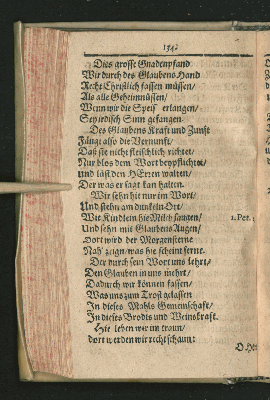 154.
Dits grosse Gnadenpfand
Wir durch des Glaubens Hand
Recht Christlich fassen müssen/
Als alle Geheimnüssen/
Wenn wir die Speiß erlangen/
Sey irdisch Sinn gefangen.
Des Glaubens Krafft und Zunfft
Fänget also die Vernunfft/
Daß sie nicht fleischlich richtet/
Nur blos dem Wort beypflichtet/
und läst den HErrn walten/
Der was er sagt kan halten.
Wir sehn hie nur im Wort/
Und stehn am dunkeln Ort/
Wie Kindlein die Milch saugen/
1. Pet.
Und sehn mit Glaubens Augen/
Dort wird der Morgensterne
Nah zeign/was hie scheint ferne.
Der durch sein Wort uns lehrt/
Den Glauben in uns mehrt/
Dadurch wir können fassen/
Was uns zum Trost gelassen
In dieses Mahls Gemeinschafft/
In dieses Brodts und Weinskrafft.
Hie leben wir im traum/
dort werden wir recht schaun: